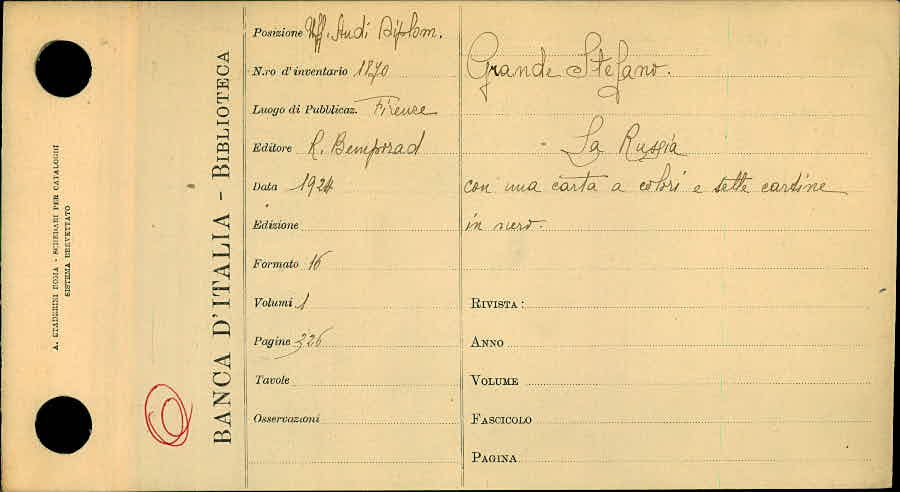 A. STADERINI ROMA - SCHEDARI PER CATALOGHI
SISTEMA BREVETTATO
BANCA D'ITALIA - BIBLIOTECA
Posizione Uff. Studi Diplom.
N.ro d'inventario 1870
Luogo di Pubblicaz. Firenze
Editore R. Bemporad
Data 1924
Edizione
Formato 16
Volumi 1
Pagine 326
Tavole
Osservazioni
Grande Stefano.
La Russia
con una carta a colori e sette cartine
in nero.
RIVISTA:
ANNO
VOLUME
FASCICOLO
PAGINA